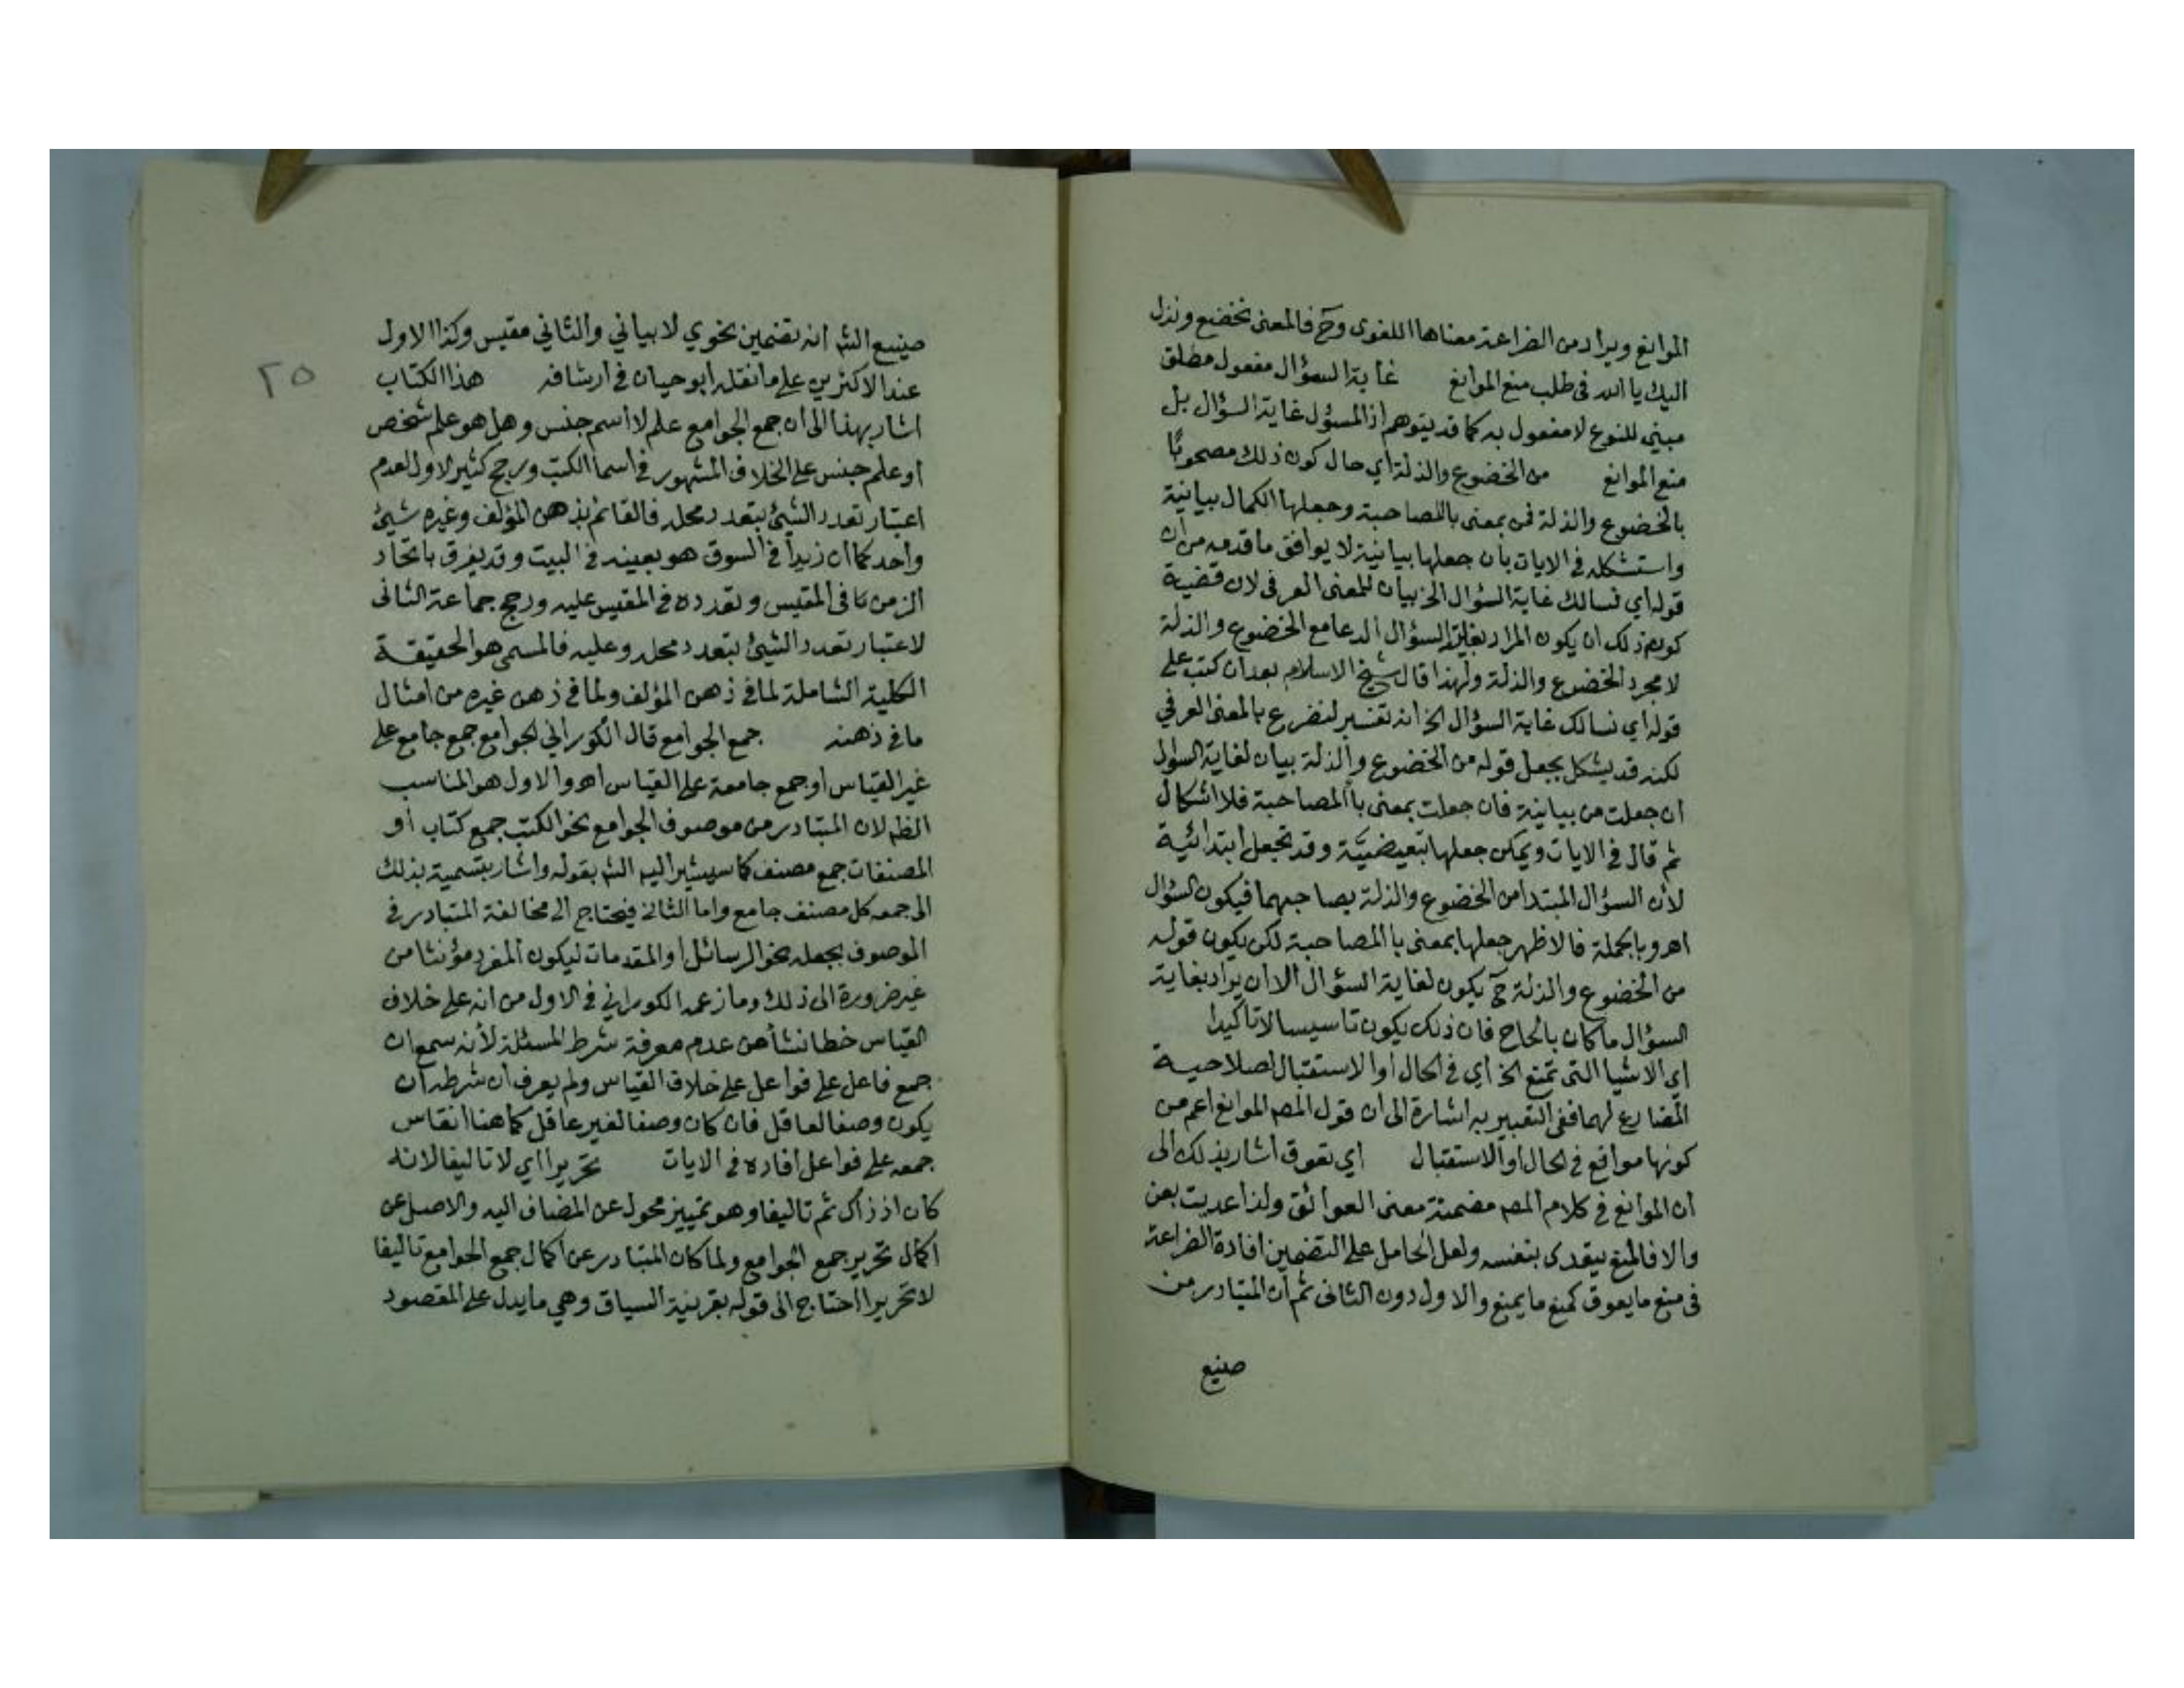 الموانع ويراد من الضراعة معناها اللغوى وح فالمعنى نخضع ونذل
اليك يا الله فى طلب منع الموانع غاية السؤال مفعول مطلق
مبني للنوع لا مفعول به كما قد يتوهم اذ المسؤل غاية السؤال بل
منع الموانع من الخضوع والذلة اي حال كون ذلك مصحوبا
بالخضوع والذلة فمن بمعنى باالمصاحبة وجعلها الكمال بيانية
واستشكله في الايات بان جعلها بيانية لا يوافق ما قدمه من ان
قوله اي نسالك غاية السؤال الخ بيان للمعنى العرفى لان قضية
كون ذلك ان يكون المراد بغاية السؤال الدعا مع الخضوع والذلة
لا مجرد الخضوع والذلة ولهذا قال شيخ الاسلام بعد ان كتب على
قوله اي نسالك غاية السؤال الخ انه تفسير لنضرع بالمعنى العرفي
لكنه قد يشكل بجعل قوله من الخضوع والذلة بيان لغاية السؤال
ان جعلت من بيانية فان جعلت بمعنى باالمصاحبة فلا اشكال
ثم قال في الايات ويمكن جعلها تبعيضية وقد تجعل ابتدائية
لأن السؤال المبتدا من الخضوع والذلة يصاحبهما فيكون السؤال
اهـ وبالجملة فالاظهر جعلها بمعنى باالمصاحبة لكن يكون قوله
من الخضوع والذلة ح يكون لغاية السؤال الا ان يراد بغاية
السؤال ما كان بالحاح فان ذلك يكون تاسيسا لا تاكيدا
اي الاشيا التى تمنع الخ اي في الحال او الاستقبال لصلاحية
المضارع لهما ففى التعبير به اشارة الى ان قول المص الموانع اعم من
كونها موانع في الحال او الاستقبال اي تعوق اشار بذلك الى
ان الموانع في كلام المص مضمنة معنى العوائق ولذا عديت بعن
والا فالمنع يتعدى بنفسه ولعل الحامل على التضمين افادة الضراعة
فى منع ما يعوق كمنع ما يمنع والاول دون الثانى ثم ان المتبادر من
صنيع
٢٥
صنيع الش انه تضمين نحوي لا بياني والثاني مقيس وكذا الاول
عند الاكثرين على ما نقله ابو حيان في ارشافه هذا الكتاب
اشار بهذا الى ان جمع الجوامع علم لا اسم جنس وهل هو علم شخص
او علم جنس على الخلاف المشهور في اسما الكتب ورجح كثير الاول لعدم
اعتبار تعدد الشيئ بتعدد محله فالقائم بذهن المؤلف وغيره شيئ
واحد كما ان زيدا في السوق هو بعينه في البيت وقد يفرق باتحاد
الزمن فى المقيس وتعدده في المقيس عليه ورجح جماعة الثانى
لاعتبار تعدد الشيئ بتعدد محله وعليه فالمسمى هو الحقيقة
الكلية الشاملة لما في ذهن المؤلف ولما في ذهن غيره من امثال
ما في ذهنه جمع الجوامع قال الكوراني الجوامع جمع جامع على
غير القياس او جمع جامعة على القياس اهـ والاول هو المناسب
الظ لان المتبادر من موصوف الجوامع نحو الكتب جمع كتاب او
المصنفات جمع مصنف كما سيشير اليه الش بقوله واشار بتسمية بذلك
الى جمعه كل مصنف جامع واما الثانى فيحتاج الى مخالفة المتبادر في
الموصوف بجعله نحو الرسائل او المقدمات ليكون المفرد مؤنثا من
غير ضرورة الى ذلك وما زعمه الكوراني في الاول من انه على خلاف
القياس خطا نشا من عدم معرفة شرط المسئلة لأنه سمع ان
جمع فاعل على فواعل على خلاف القياس ولم يعرف ان شرطه ان
يكون وصفا لعاقل فان كان وصفا لغير عاقل كما هنا انقاس
جمعه على فواعل افاده في الايات تحريرا اي لا تاليفا لانه
كان اذ ذاك ثم تاليفا وهو تمييز محول عن المضاف اليه والاصل عن
اكمال تحرير جمع الجوامع ولما كان المتبادر عن اكمال جمع الجوامع تاليفا
لا تحريرا احتاج الى قوله بقرينة السياق وهي ما يدل على المقصود